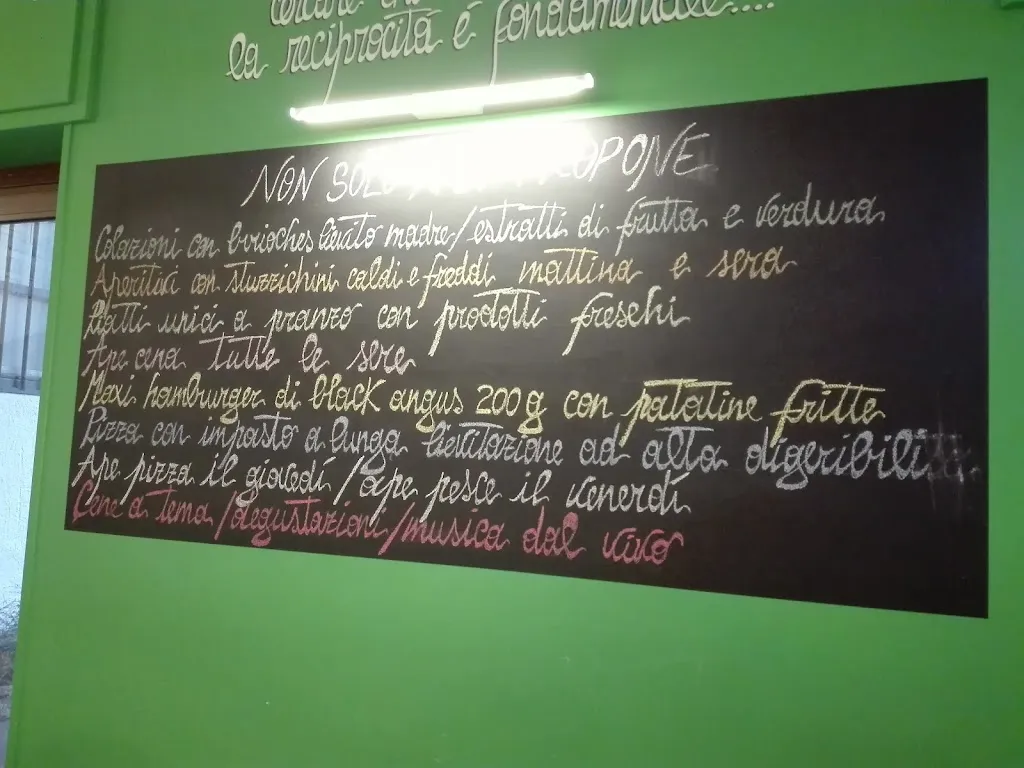 la reciprocità é fondamentale....
NON SOLO PROPONE
Colazioni con brioches lievito madre/estratti di frutta e verdura
Aperitivi con stuzzichini caldi e freddi mattina e sera
Piatti unici a pranzo con prodotti freschi
Ape cena tutte le sere
Maxi hamburger di black angus 200g con patatine fritte
Pizza con impasto a lunga lievitazione ad alta digeribili
Ape pizza il giovedí/ape pesce il venerdí
Cene a tema/degustazioni/musica dal vivo